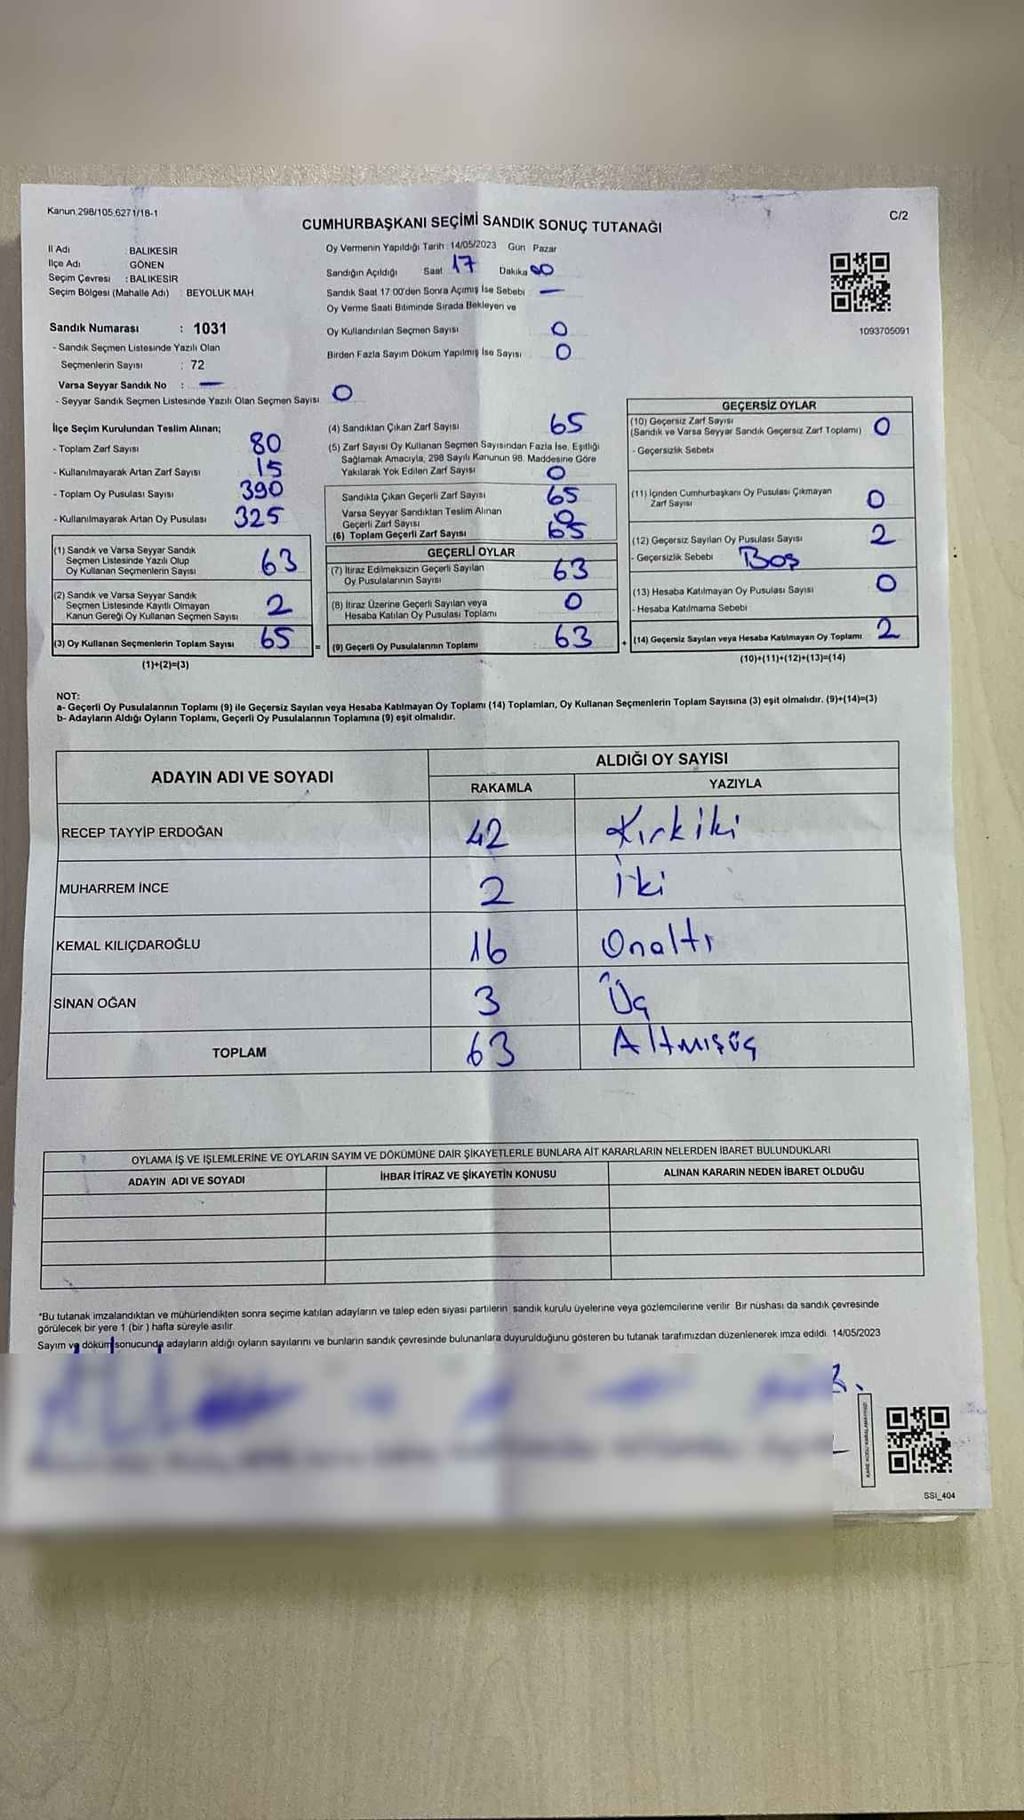 Kanun.298/105.6271/18-1
C/2
CUMHURBAŞKANI SEÇİMİ SANDIK SONUÇ TUTANAĞI
İl Adı BALIKESİR
İlçe Adı GÖNEN
Seçim Çevresi : BALIKESİR
Seçim Bölgesi (Mahalle Adı) BEYOLUK MAH
Sandık Numarası : 1031
- Sandık Seçmen Listesinde Yazılı Olan
Seçmenlerin Sayısı : 72
Varsa Seyyar Sandık No : —
- Seyyar Sandık Seçmen Listesinde Yazılı Olan Seçmen Sayısı 0
Oy Vermenin Yapıldığı Tarih 14/05/2023 Gün Pazar
Sandığın Açıldığı Saat 17 Dakika 00
Sandık Saat 17 00'den Sonra Açımış İse Sebebi —
Oy Verme Saati Bitiminde Sırada Bekleyen ve
Oy Kullandırılan Seçmen Sayısı 0
Birden Fazla Sayım Döküm Yapılmış İse Sayısı 0
1093705091
İlçe Seçim Kurulundan Teslim Alınan;
- Toplam Zarf Sayısı 80
- Kullanılmayarak Artan Zarf Sayısı 15
- Toplam Oy Pusulası Sayısı 390
- Kullanılmayarak Artan Oy Pusulası 325
(1) Sandık ve Varsa Seyyar Sandık
Seçmen Listesinde Yazılı Olup
Oy Kullanan Seçmenlerin Sayısı 63
(2) Sandık ve Varsa Seyyar Sandık
Seçmen Listesinde Kayıtlı Olmayan
Kanun Gereği Oy Kullanan Seçmen Sayısı 2
(3) Oy Kullanan Seçmenlerin Toplam Sayısı 65
(1)+(2)=(3)
(4) Sandıktan Çıkan Zarf Sayısı 65
(5) Zarf Sayısı Oy Kullanan Seçmen Sayısından Fazla İse, Eşitliği
Sağlamak Amacıyla, 298 Sayılı Kanunun 98. Maddesine Göre
Yakılarak Yok Edilen Zarf Sayısı 0
Sandıkta Çıkan Geçerli Zarf Sayısı 65
Varsa Seyyar Sandıktan Teslim Alınan
Geçerli Zarf Sayısı 0
(6) Toplam Geçerli Zarf Sayısı 65
GEÇERLİ OYLAR
(7) İtiraz Edilmeksizin Geçerli Sayılan
Oy Pusulalarının Sayısı 63
(8) İtiraz Üzerine Geçerli Sayılan veya
Hesaba Katılan Oy Pusulası Toplamı 0
(9) Geçerli Oy Pusulalarının Toplamı 63
=
+
GEÇERSİZ OYLAR
(10) Geçersiz Zarf Sayısı
(Sandık ve Varsa Seyyar Sandık Geçersiz Zarf Toplamı) 0
- Geçersizlik Sebebi
(11) İçinden Cumhurbaşkanı Oy Pusulası Çıkmayan
Zarf Sayısı 0
(12) Geçersiz Sayılan Oy Pusulası Sayısı 2
- Geçersizlik Sebebi Boş
(13) Hesaba Katılmayan Oy Pusulası Sayısı 0
- Hesaba Katılmama Sebebi
(14) Geçersiz Sayılan veya Hesaba Katılmayan Oy Toplamı 2
(10)+(11)+(12)+(13)=(14)
NOT:
a- Geçerli Oy Pusulalarının Toplamı (9) ile Geçersiz Sayılan veya Hesaba Katılmayan Oy Toplamı (14) Toplamları, Oy Kullanan Seçmenlerin Toplam Sayısına (3) eşit olmalıdır. (9)+(14)=(3)
b- Adayların Aldığı Oyların Toplamı, Geçerli Oy Pusulalarının Toplamına (9) eşit olmalıdır.
ADAYIN ADI VE SOYADI
ALDIĞI OY SAYISI
RAKAMLA YAZIYLA
RECEP TAYYİP ERDOĞAN 42 Kırkiki
MUHARREM İNCE 2 İki
KEMAL KILIÇDAROĞLU 16 Onaltı
SİNAN OĞAN 3 Üç
TOPLAM 63 Altmışüç
OYLAMA İŞ VE İŞLEMLERİNE VE OYLARIN SAYIM VE DÖKÜMÜNE DAİR ŞİKAYETLERLE BUNLARA AİT KARARLARIN NELERDEN İBARET BULUNDUKLARI
ADAYIN ADI VE SOYADI İHBAR İTİRAZ VE ŞİKAYETİN KONUSU ALINAN KARARIN NEDEN İBARET OLDUĞU
*Bu tutanak imzalandıktan ve mühürlendikten sonra seçime katılan adayların ve talep eden siyasi partilerin sandık kurulu üyelerine veya gözlemcilerine verilir Bir nüshası da sandık çevresinde
görülecek bir yere 1 (bir ) hafta süreyle asılır.
Sayım ve döküm sonucunda adayların aldığı oyların sayılarını ve bunların sandık çevresinde bulunanlara duyurulduğunu gösteren bu tutanak tarafımızdan düzenlenerek imza edildi. 14/05/2023
SSI_404